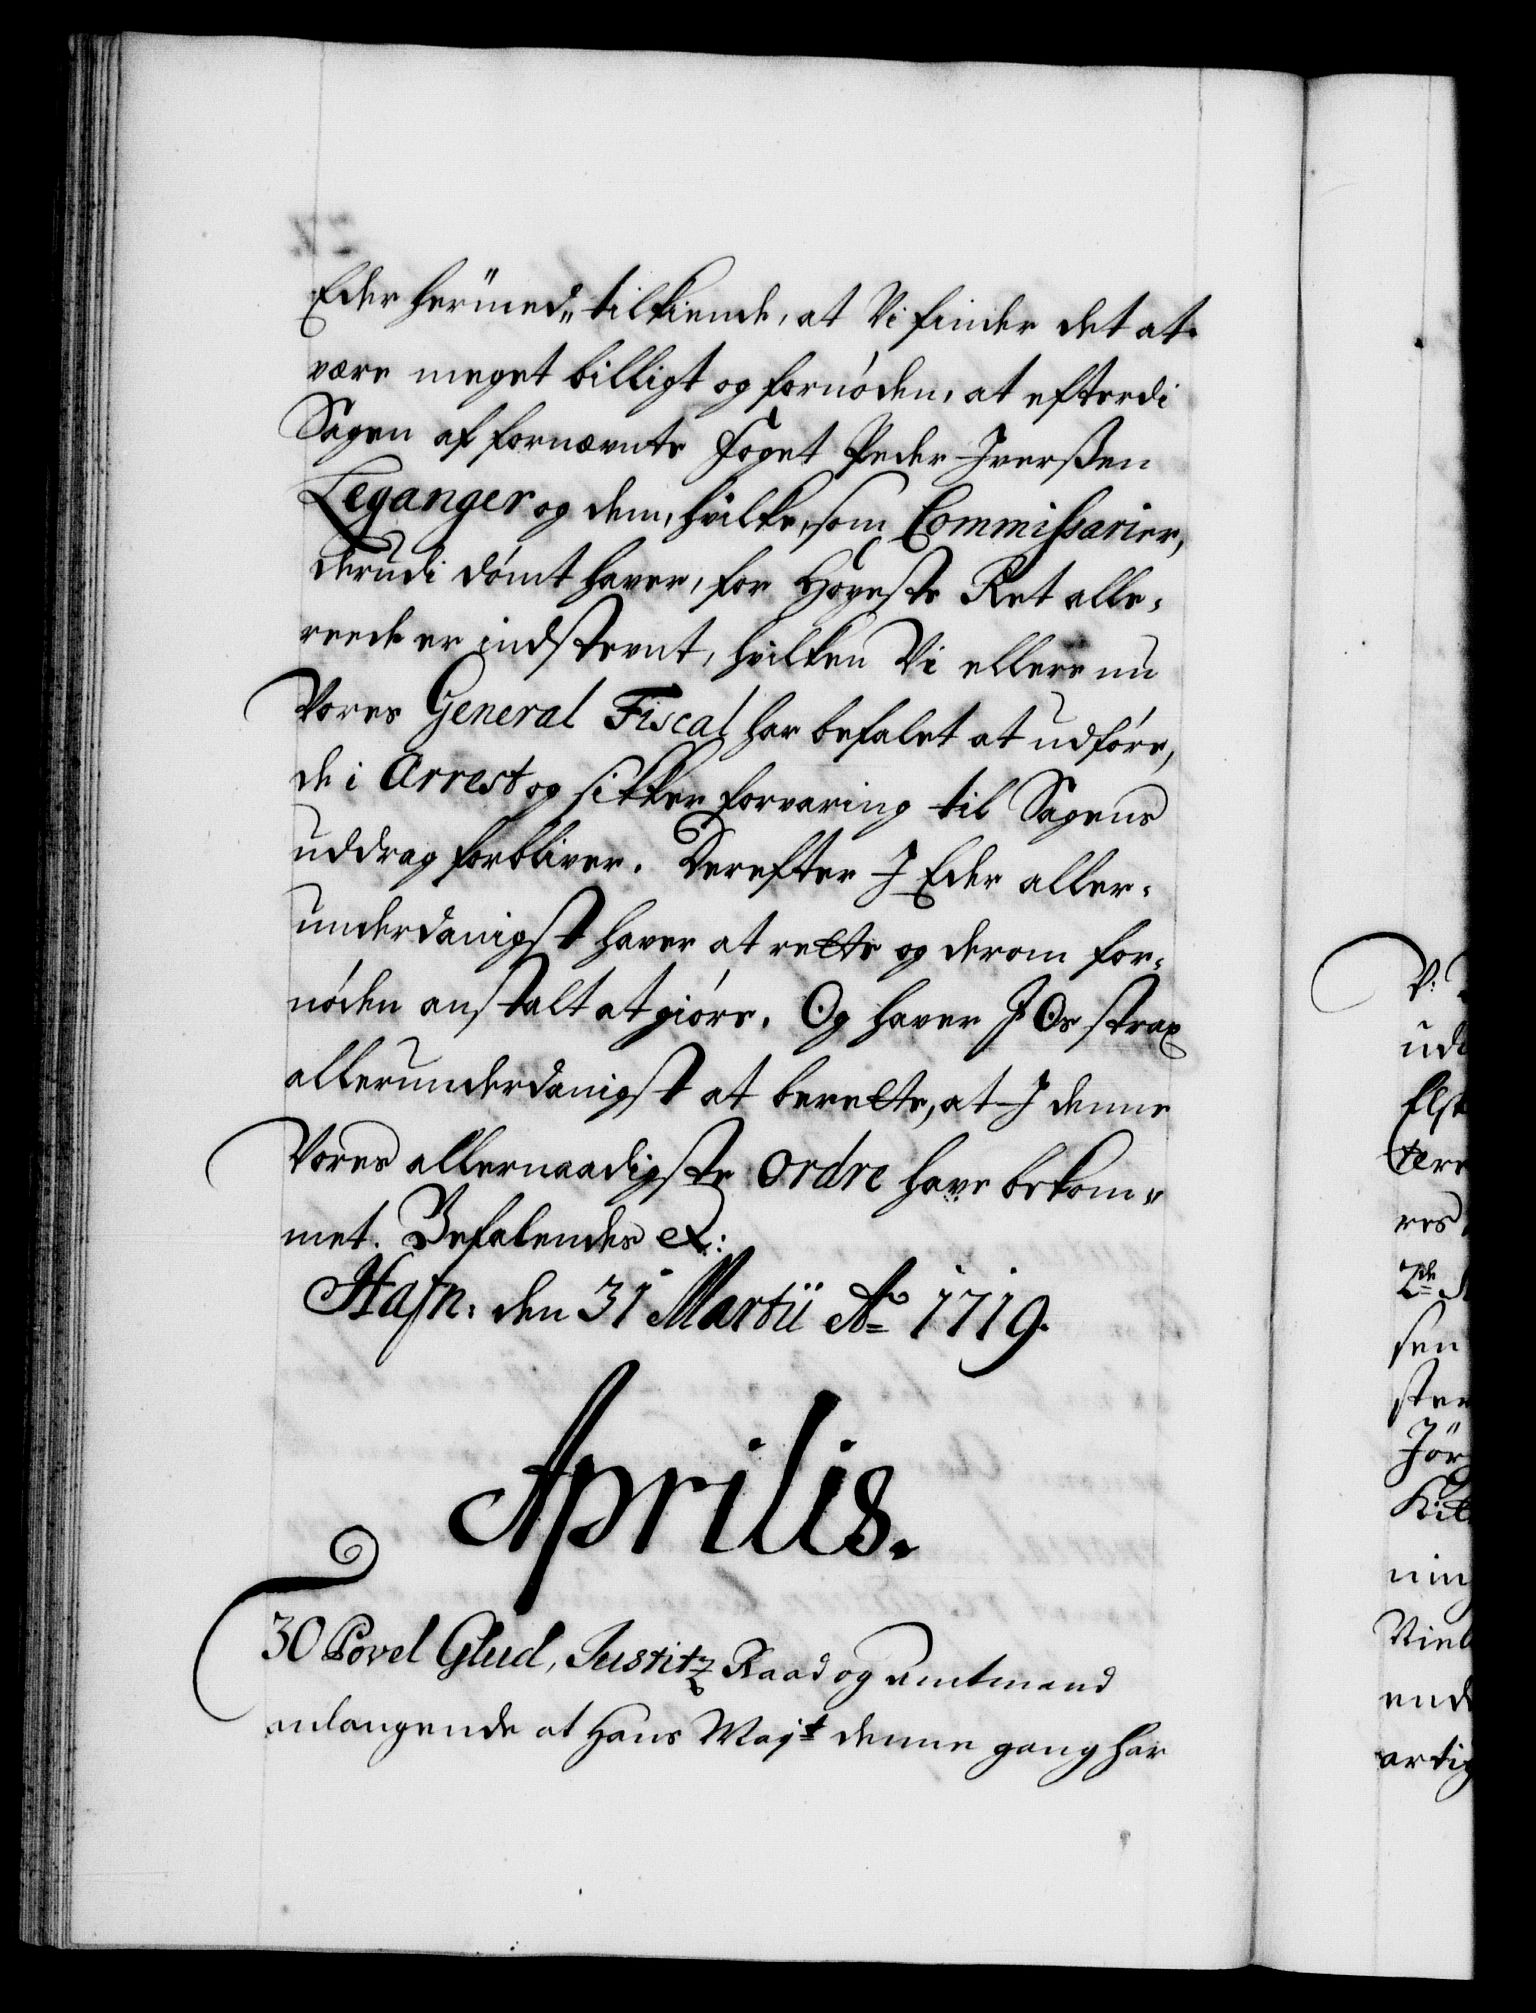 Eder hermed„ tilkiende, at Vi finder det at
være meget billigt og fornøden, at efterdi
Sagen af fornævnte Foget Peder Iverssen
Leganger og dem, hvilke, som Commissarier,
derudi dömt haver, for Høyeste Ret alle-
reede er indstevnt, hvilken Vi ellers nu
Vores General Fiscal har befalet at udføre,
de i Arrest og sikker forvaring til Sagens
uddrag forbliver. Derefter I Eder aller-
underdanigst haver at rette og derom for-
nøden anstalt at giøre. Og haver I Os strax
allerunderdanigst at berette, at I denne
Vores allernaadigste ordre have bekom-
met. Befalendes &:
Hafn: den 31 Martii Ao 1719.
Aprilis.
30 Povel Glud, Justitz Raad og amtmand
anlangende at Hans Mayt denne gang har
V:
ud
Elsk
res
2de
sen
ster
Jör
nin
Viel
end
artig